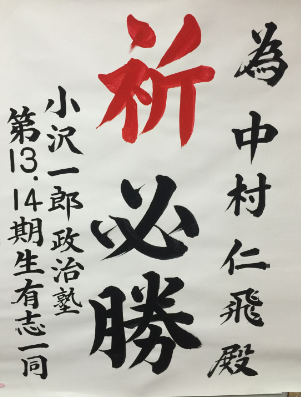 為中村仁飛殿
祈必勝
小沢一郎政治塾
第13.14期生有志一同